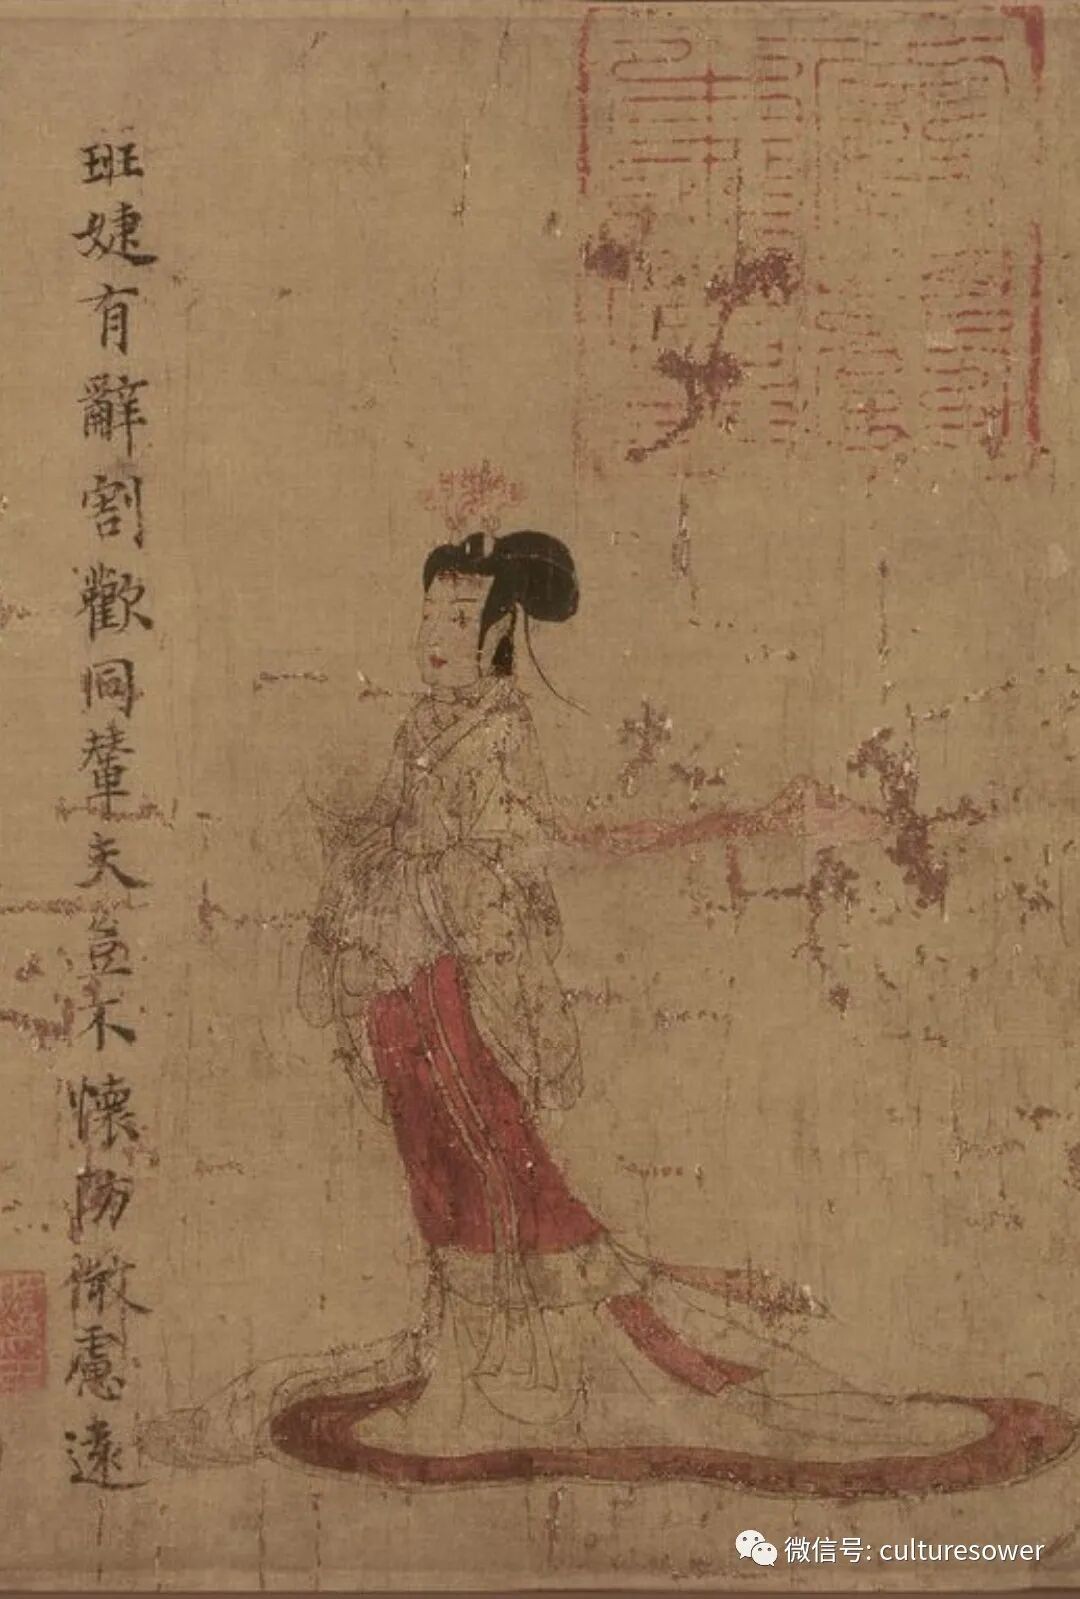 班婕有辭割歡同輦夫豈不懷防微慮遠
微信号: culturesower